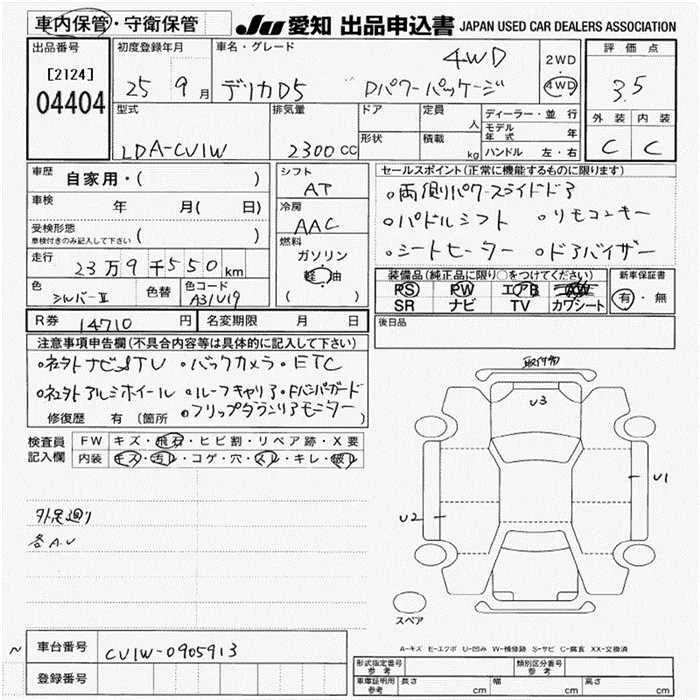 車内保管・守衛保管 JU 愛知 出品申込書 JAPAN USED CAR DEALERS ASSOCIATION
出品番号
[2124]
04404
初度登録年月
25 9月
車名・グレード
デリカD5 Dパワーパッケージ 4WD
2WD
4WD
評価点
3.5
外装 内装
C C
型式
LDA-CV1W
排気量
2300cc
ドア
形状
定員 人
積載 kg
ディーラー・並行
モデル年式 年
ハンドル 左・右
車歴 自家用・( )
車検 年 月( 日)
受検形態
車検付きのみ記入して下さい ( )
走行 23万9千550km
色 シルバーII 色替 色コード A31U19
シフト
AT
冷房
AAC
燃料
ガソリン
軽油
( )
セールスポイント(正常に機能するものに限ります)
。両側パワースライドドア
。パドルシフト 。リモコンキー
。シートヒーター 。ドアバイザー
装備品(純正品に限り○をつけてください)
PS PW エアB
SR ナビ TV カワシート
新車保証書
有・無
R券 14710円 名変期限 月 日
後日品
注意事項申告欄(不具合内容等は具体的に記入して下さい)
。社外ナビ&TV 。バックカメラ 。ETC
。社外アルミホイール 。ルーフキャリア 。Fバンパガード
。フリップダウンリアモニター
修復歴 有 [箇所
検査員記入欄
FW キズ・飛石・ヒビ割・リペア跡・X要
内装 キズ・汚れ・コゲ・穴・スレ・キレ・破れ
外足廻り
各A.U
取付物
U3
U1
U2
スペア
A-キズ E-エクボ U-凹み W-補修跡 S-サビ C-腐食 XX-交換済
車台番号 CV1W-0905913
登録番号
形式指定番号 参考
類別区分番号 参考
車庫証明用 参考 長さ cm 幅 cm 高さ cm